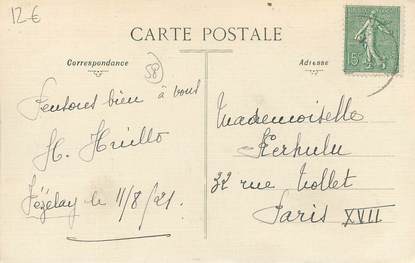 12€
CARTE POSTALE
Correspondance
Adresse
58
15
Pensons bien à vous
H. Huillo
Vézelay le 11/8/21.
Mademoiselle
Kerhulu
32 rue Nollet
Paris XVII